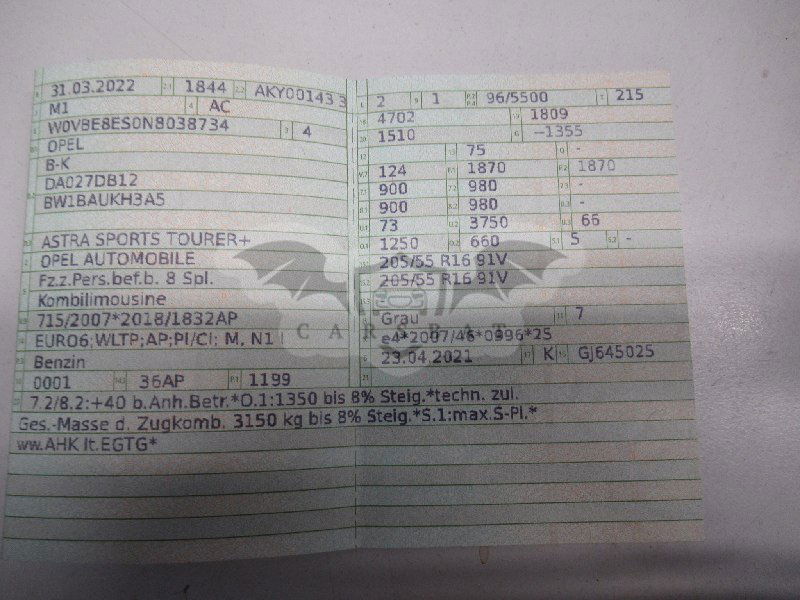 31.03.2022 1844 AKY00143 3
M1 AC
W0VBE8ES0N8038734 4
OPEL
B-K
DA027DB12
BW1BAUKH3A5
ASTRA SPORTS TOURER+
OPEL AUTOMOBILE
Fz.z.Pers.bef.b. 8 Spl.
Kombilimousine
715/2007*2018/1832AP
EURO6;WLTP;AP;PI/CI; M, N1 I
Benzin
0001 36AP 1199
2 1 96/5500 215
4702 1809
1510 —1355
75 -
124 1870 1870
900 980 -
900 980 -
73 3750 66
1250 660 5 -
205/55 R16 91V
205/55 R16 91V
Grau 7
e4*2007/46*0996*25
23.04.2021 K GJ645025
7.2/8.2:+40 b.Anh.Betr.*O.1:1350 bis 8% Steig.*techn. zul.
Ges.-Masse d. Zugkomb. 3150 kg bis 8% Steig.*S.1:max.S-Pl.*
ww.AHK lt.EGTG*
CARSBAT